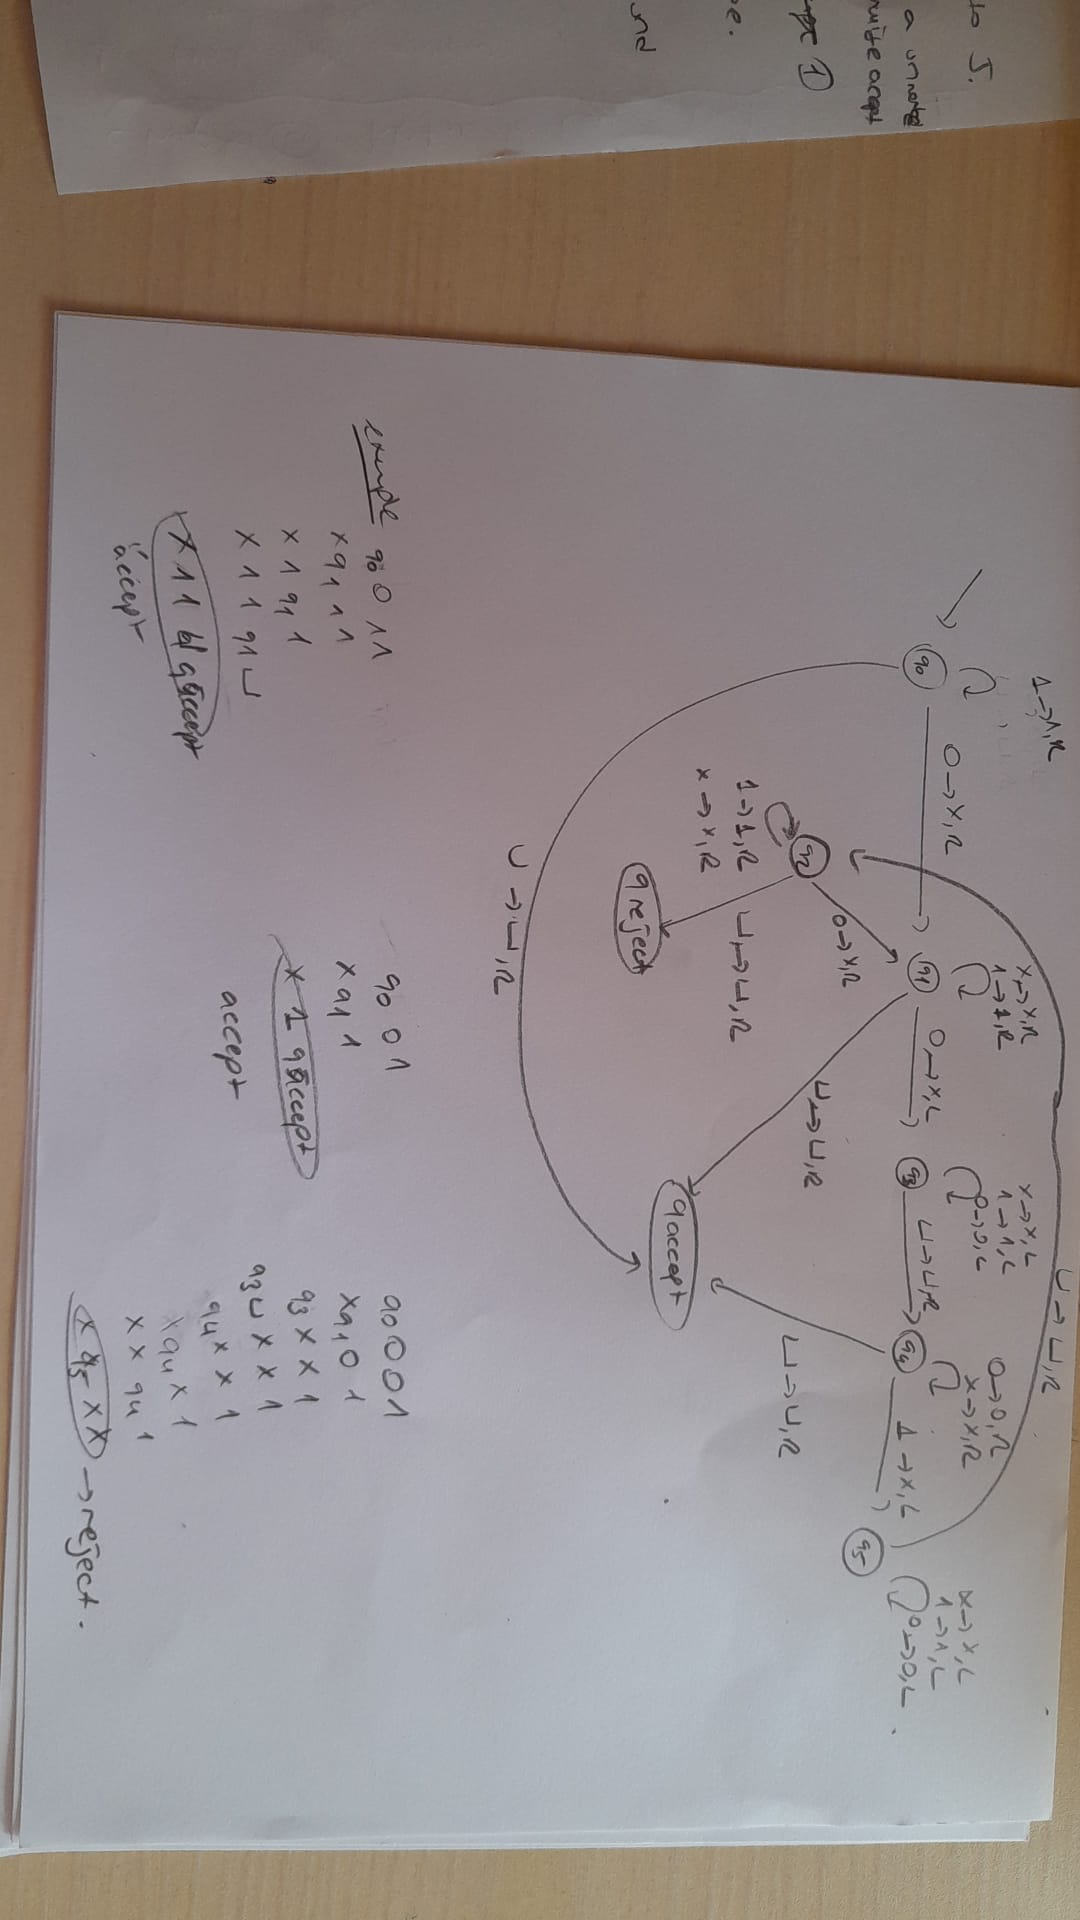 to 5.
a unmarked
accept
①
e.
und
1→1,R
q0
0→x,R
x→x,R
1→1,R
q1
0→x,L
x→x,L
1→1,L
0→0,L
q3
⊔→⊔,R
0→0,R
x→x,R
q4
1→x,L
x→x,L
1→1,L
0→0,L
q5
⊔→⊔,R
q2
1→1,R
x→x,R
0→x,R
⊔→⊔,R
q reject
⊔→⊔,R
q accept
⊔→⊔,R
⊔→⊔,R
example q0 0 1 1
x q1 1 1
x 1 q1 1
x 1 1 q1 ⊔
x 1 1 ⊔ qaccept
accept
q0 0 1
x q1 1
x 1 qaccept
accept
q0 0 0 1
x q1 0 1
q3 x x 1
q3 ⊔ x x 1
q4 x x 1
x q4 x 1
x x q4 1
x q5 x x → reject.